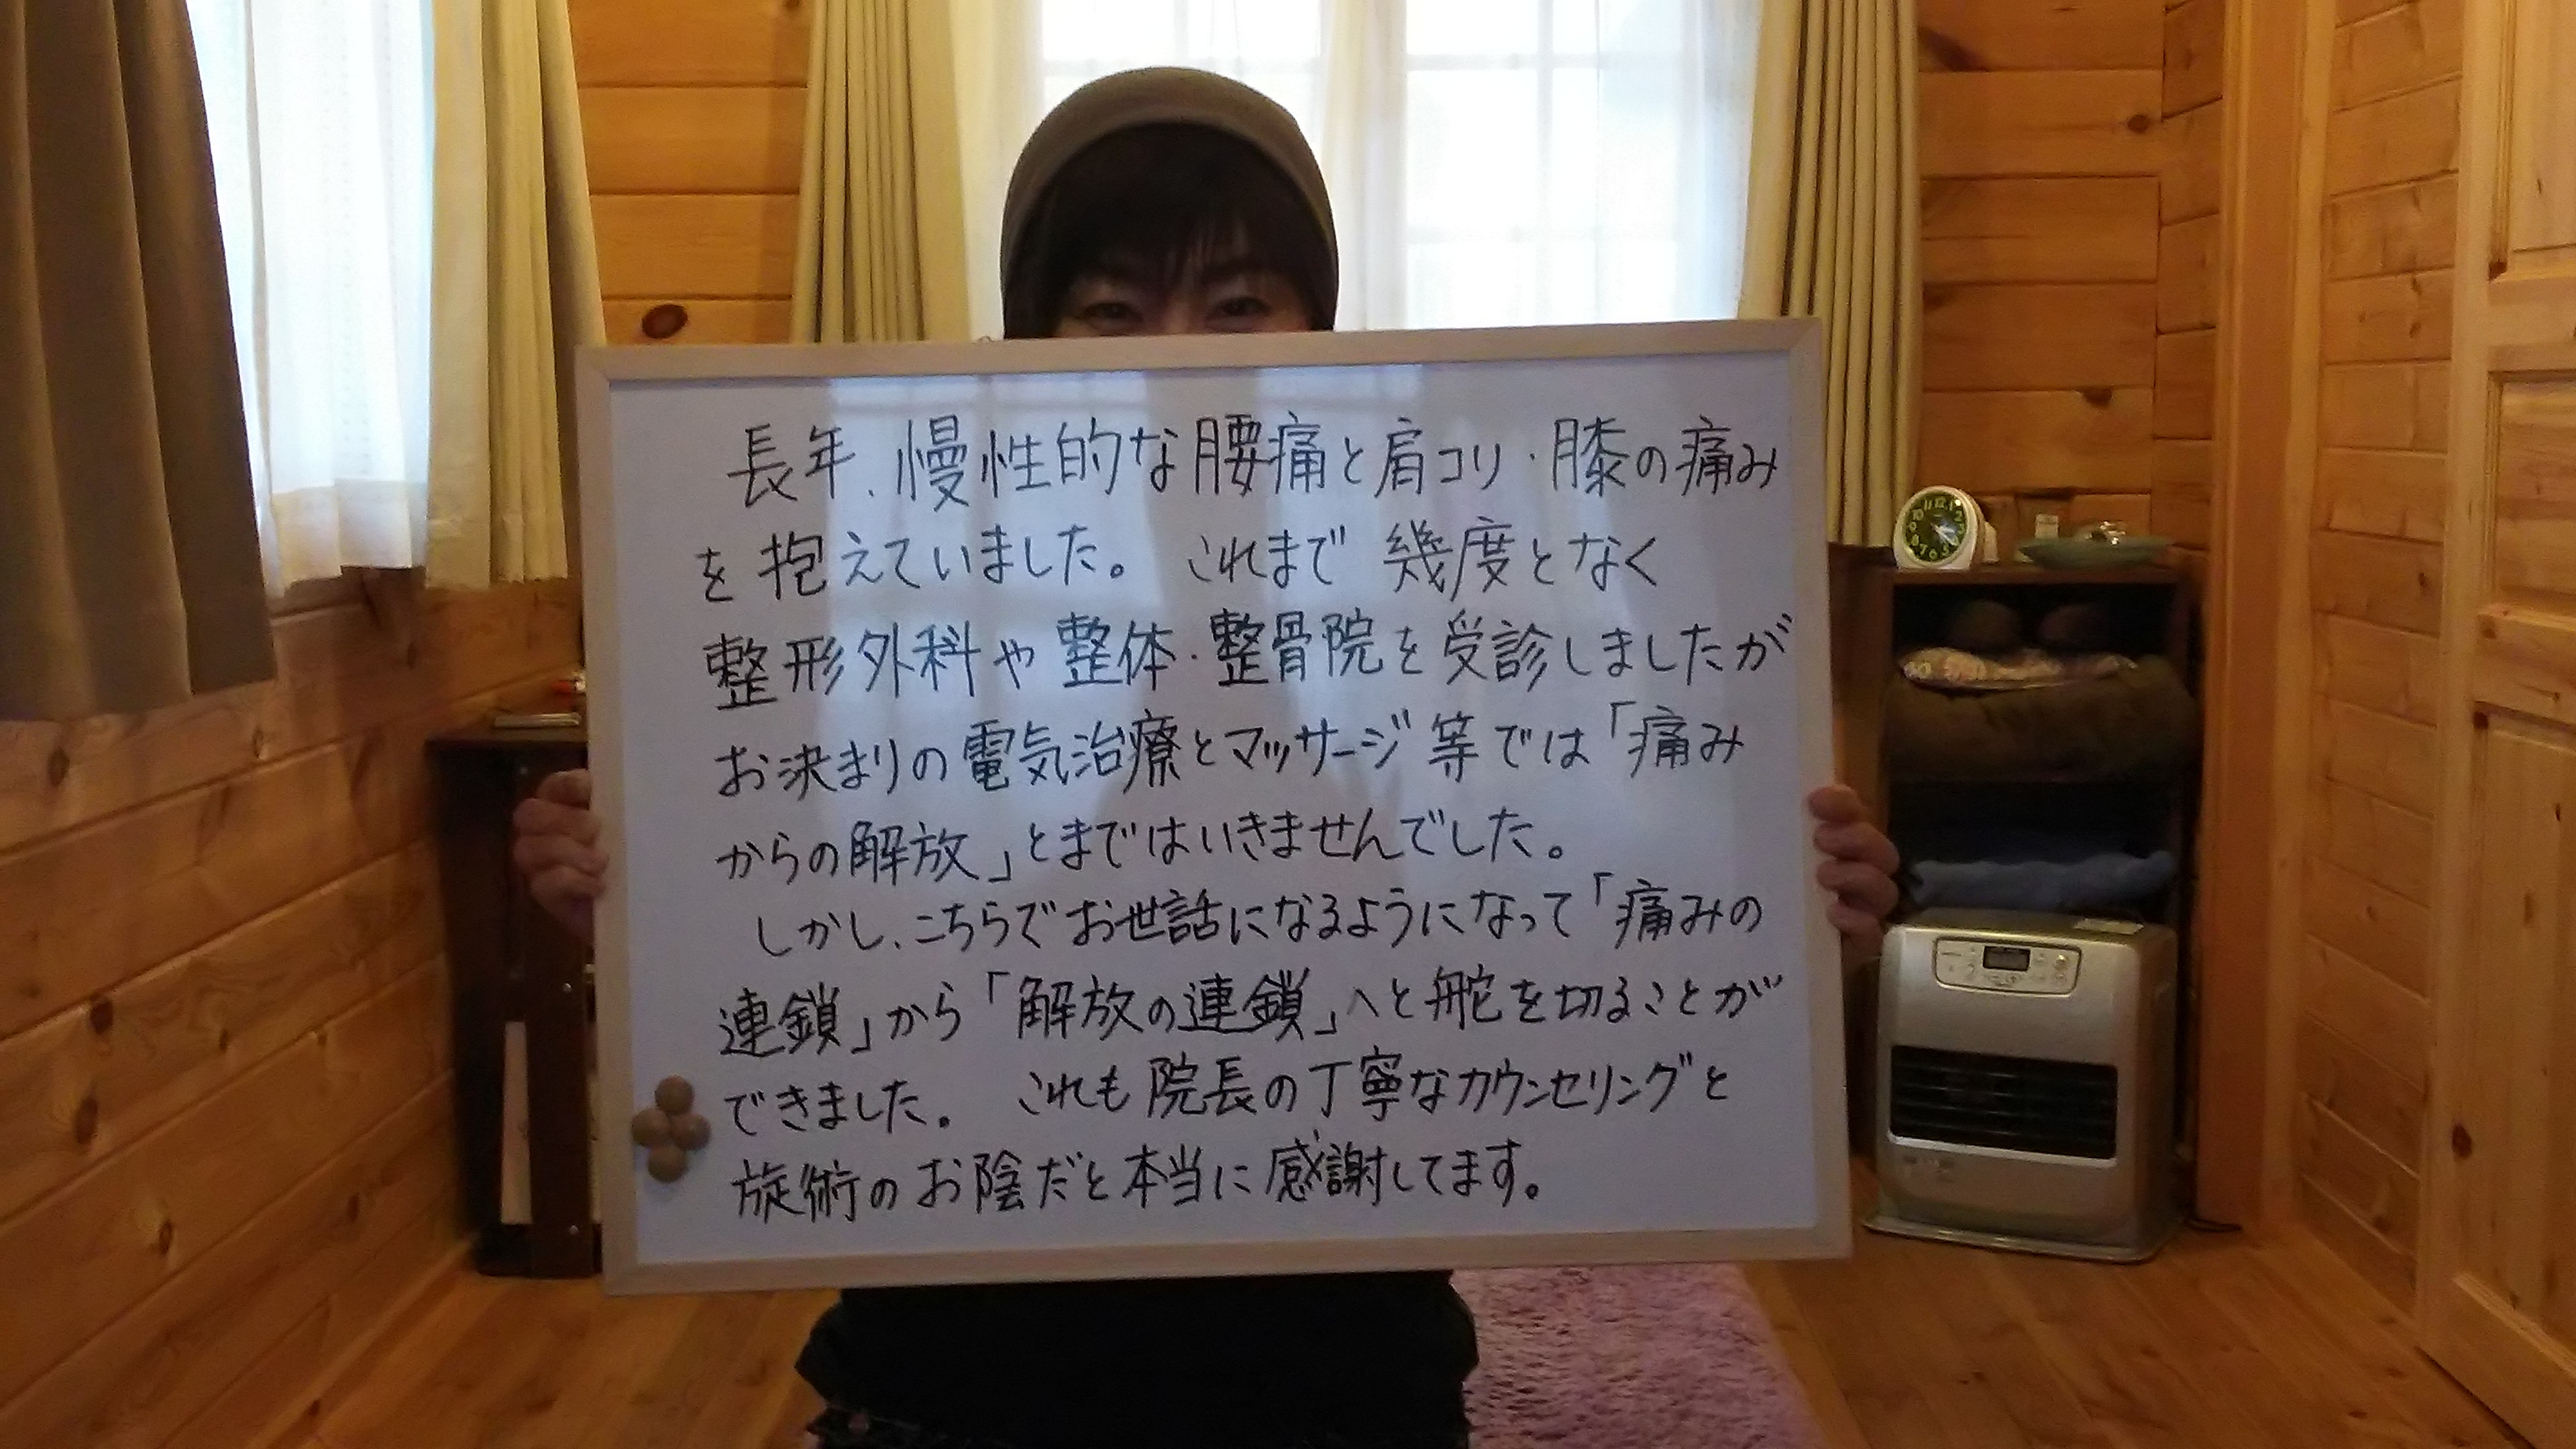 長年、慢性的な腰痛と肩コリ・膝の痛み
を抱えていました。これまで幾度となく
整形外科や整体・整骨院を受診しましたが
お決まりの電気治療とマッサージ等では「痛み
からの解放」とまではいきませんでした。
しかし、こちらでお世話になるようになって「痛みの
連鎖」から「解放の連鎖」へと舵を切ることが
できました。これも院長の丁寧なカウンセリングと
施術のお陰だと本当に感謝してます。